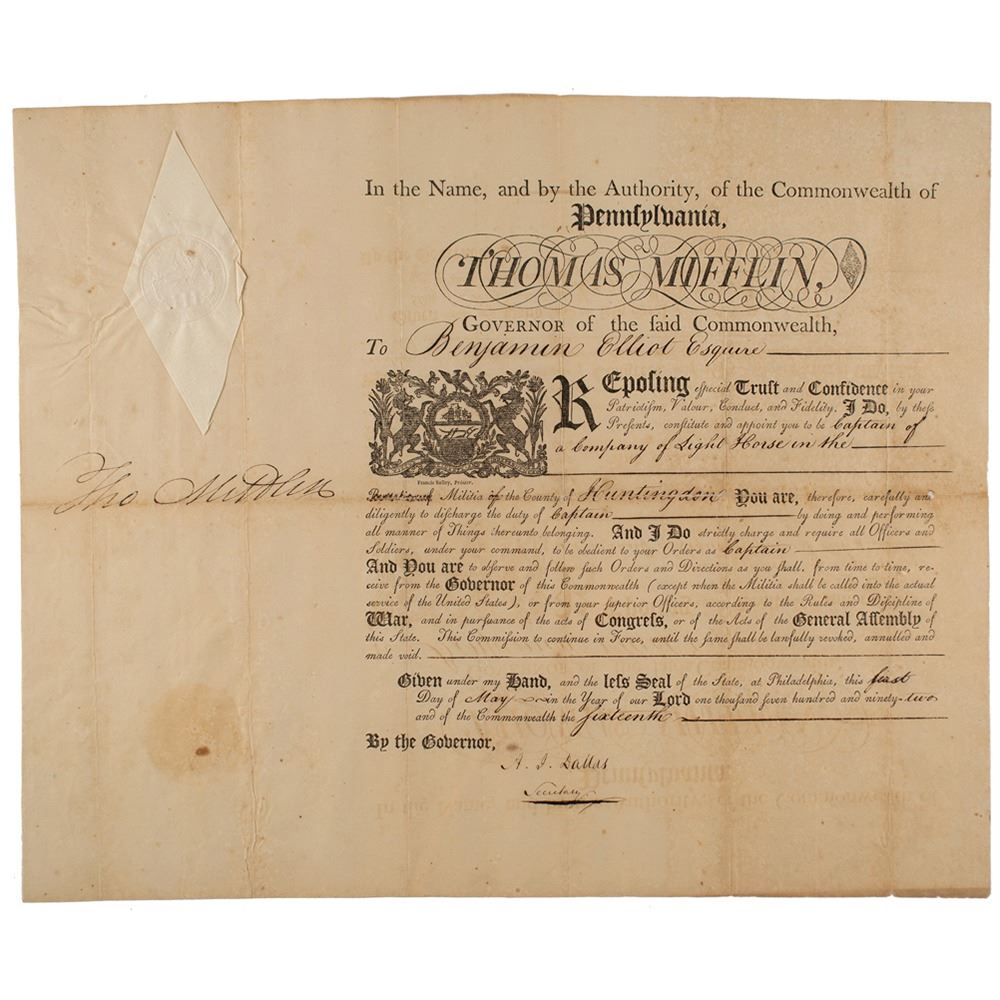 In the Name, and by the Authority, of the Commonwealth of
Pennſylvania,
THOMAS MIFFLIN,
GOVERNOR of the ſaid Commonwealth,
To Benjamin Elliot Esquire
REpoſing eſpecial Truſt and Confidence in your
Patriotiſm, Valour, Conduct, and Fidelity, I Do, by theſe
Preſents, conſtitute and appoint you to be Captain of
a Company of Light Horse in the
Francis Bailey, Printer.
Tho Mifflin
Militia of the County of Huntingdon You are, therefore, carefully and
diligently to diſcharge the duty of Captain by doing and performing
all manner of Things thereunto belonging. And I Do strictly charge and require all Officers and
Soldiers, under your command, to be obedient to your Orders as Captain
And You are to obſerve and follow ſuch Orders and Directions as you ſhall, from time to time, re-
ceive from the Governor of this Commonwealth (except when the Militia ſhall be called into the actual
service of the United States), or from your ſuperior Officers, according to the Rules and Diſcipline of
War, and in purſuance of the acts of Congreſs, or of the Acts of the General Aſſembly of
this State. This Commiſsion to continue in Force, until the ſame ſhall be lawfully revoked, annulled and
made void.
Given under my Hand, and the leſs Seal of the State, at Philadelphia, this first
Day of May in the Year of our Lord one thouſand ſeven hundred and ninety-two
and of the Commonwealth the ſixteenth
By the Governor,
A. J. Dallas
Secretary